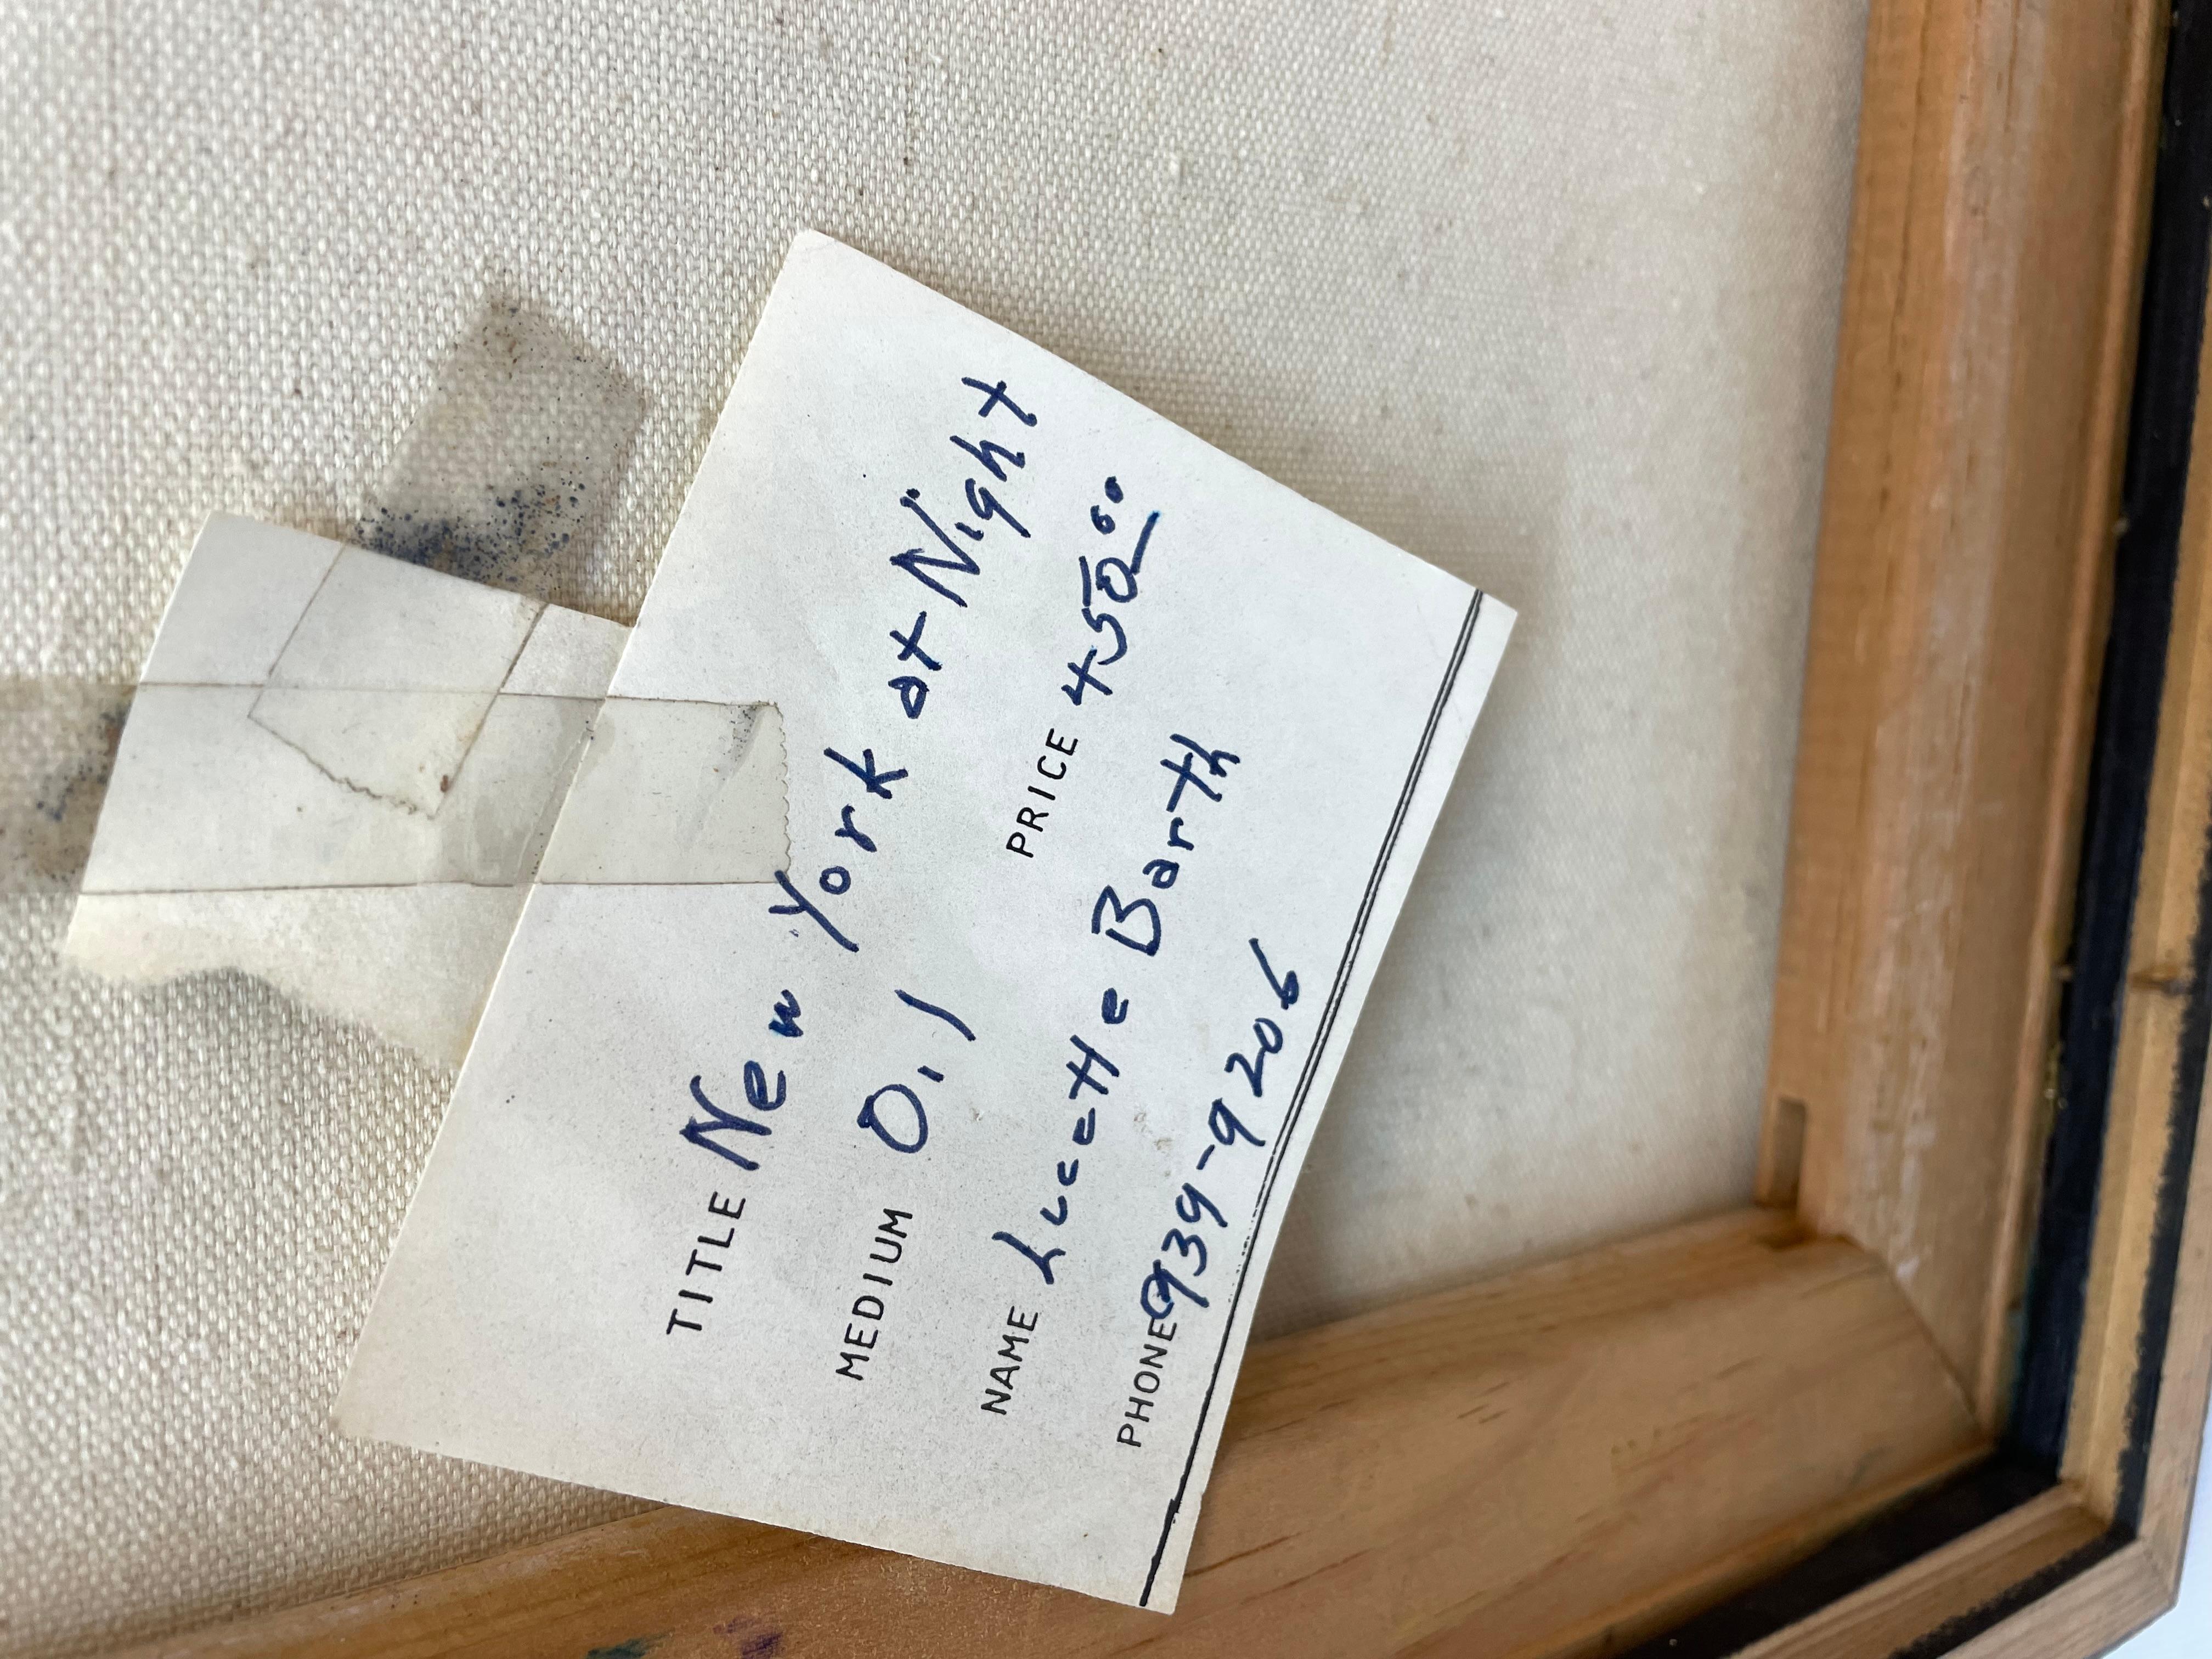 TITLE New York at Night
MEDIUM Oil
PRICE 450.00
NAME Lucette Barth
PHONE 939-9206